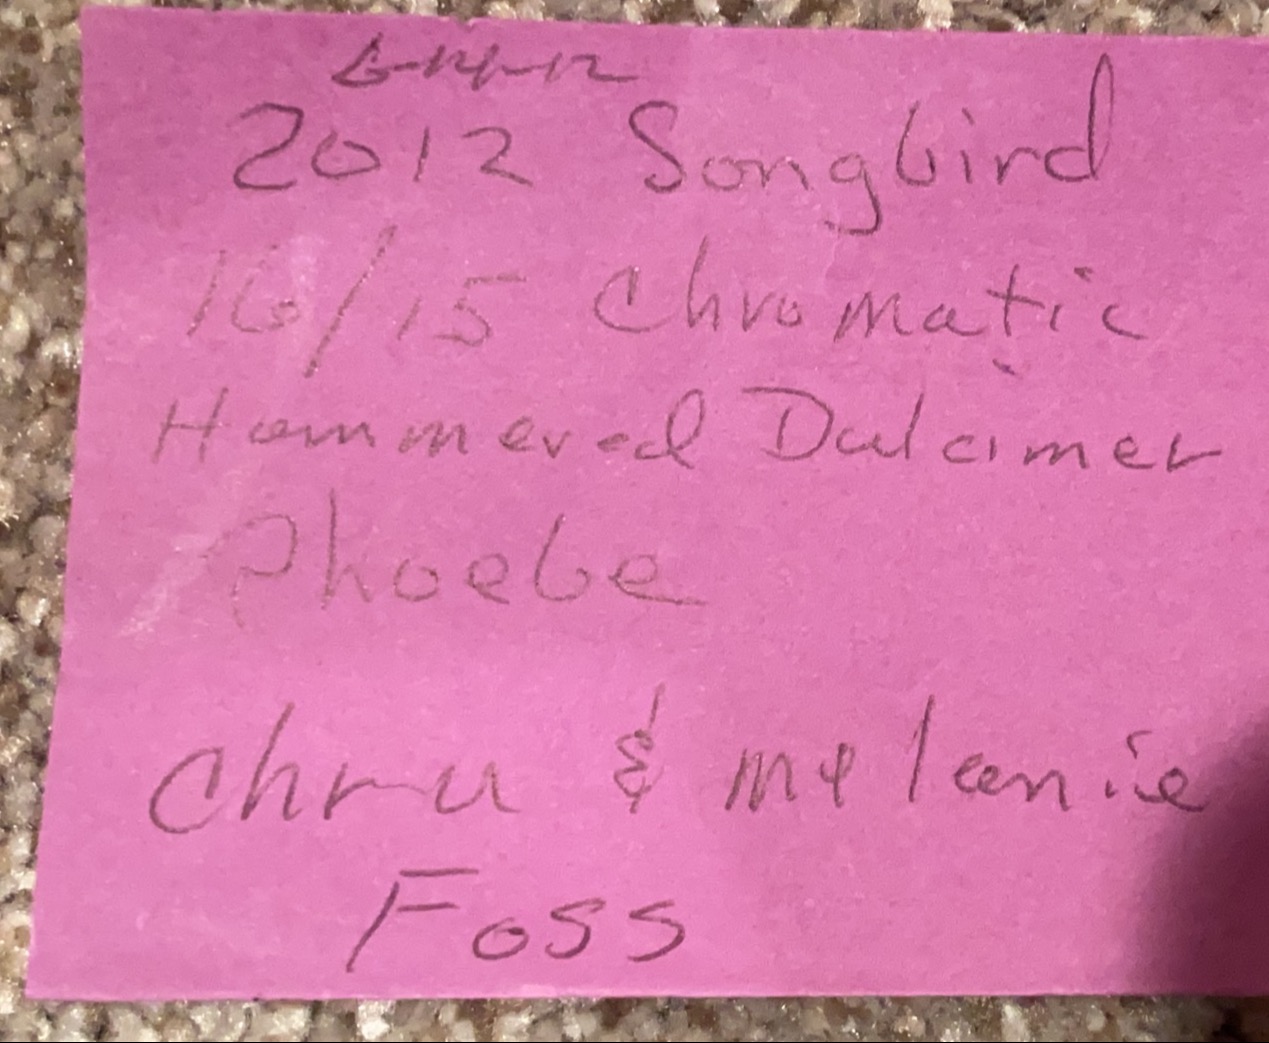 6-14-12
2012 Songbird
16/15 Chromatic
Hammered Dulcimer
Phoebe
& Melanie
Foss